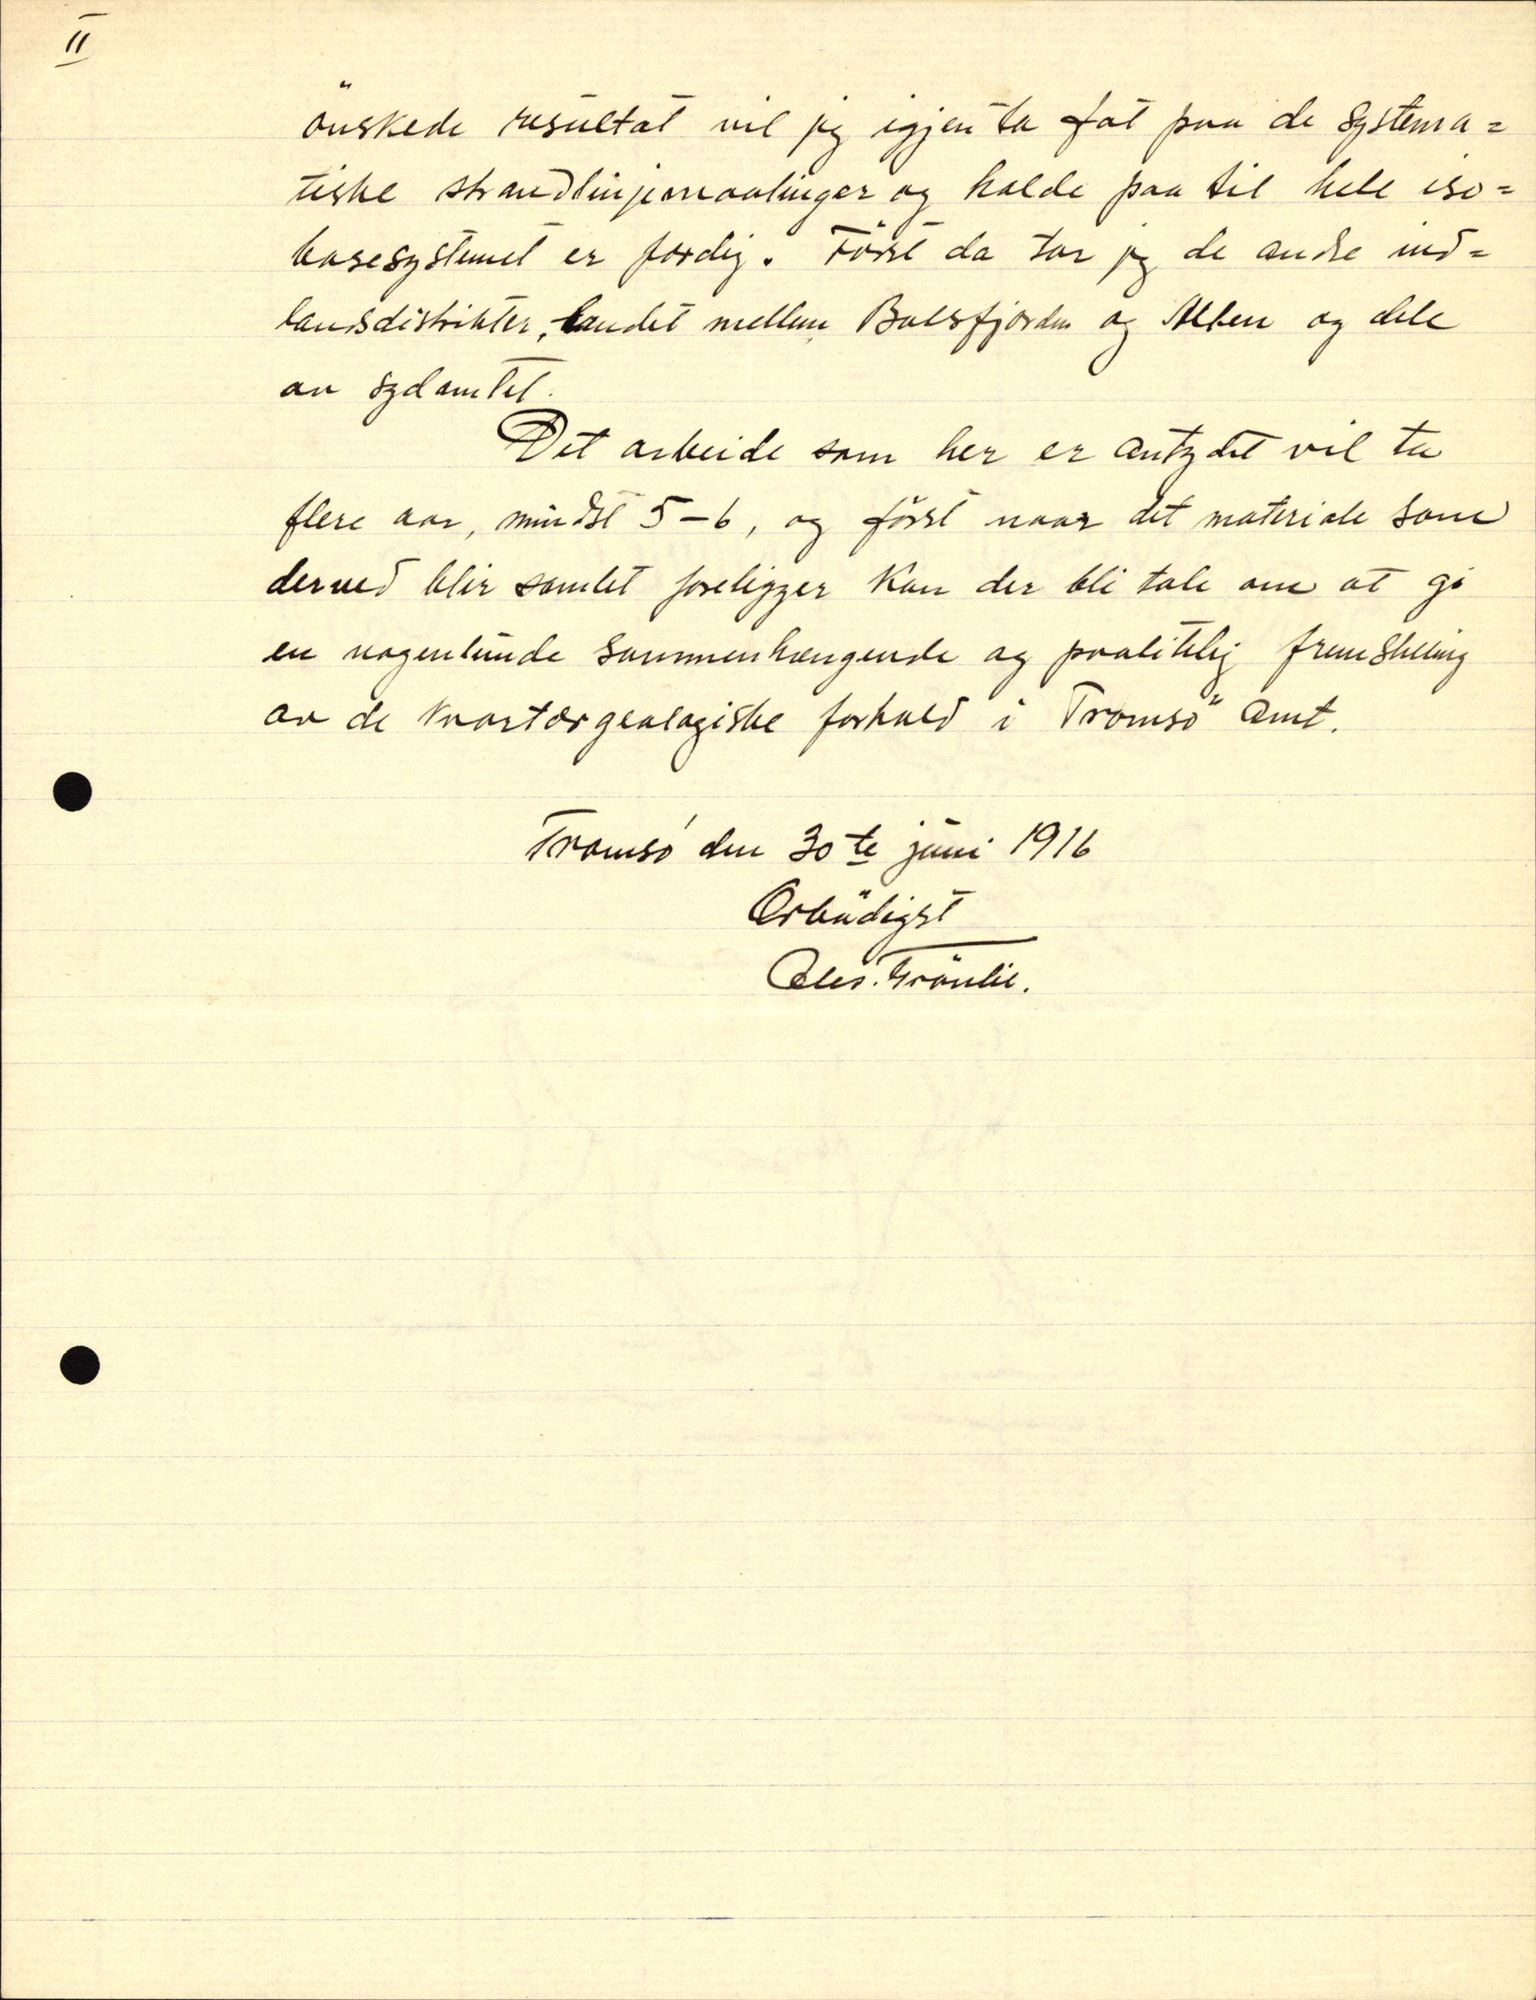 II
önskede resultat vil jeg igjen ta fat paa de systema=
tiske strandlinjemaalinger og holde paa til hele iso=
basesystemet er færdig. Først da tar jeg de andre ind=
landsdistrikter, landet mellem Balsfjorden og Alten og dele
av sydamtet.
Det arbeide som her er antydet vil ta
flere aar, mindst 5-6, og først naar det materiale som
derved blir samlet foreligger kan der bli tale om at gi
en nogenlunde sammenhængende og paalitelig fremstilling
av de kvartærgeologiske forhold i Tromsö amt.
Tromsö den 30te juni 1916
Ærbødigst
Ole T. Grønlie.